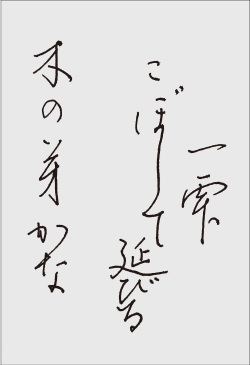 一雫
こぼして延びる
木の芽かな